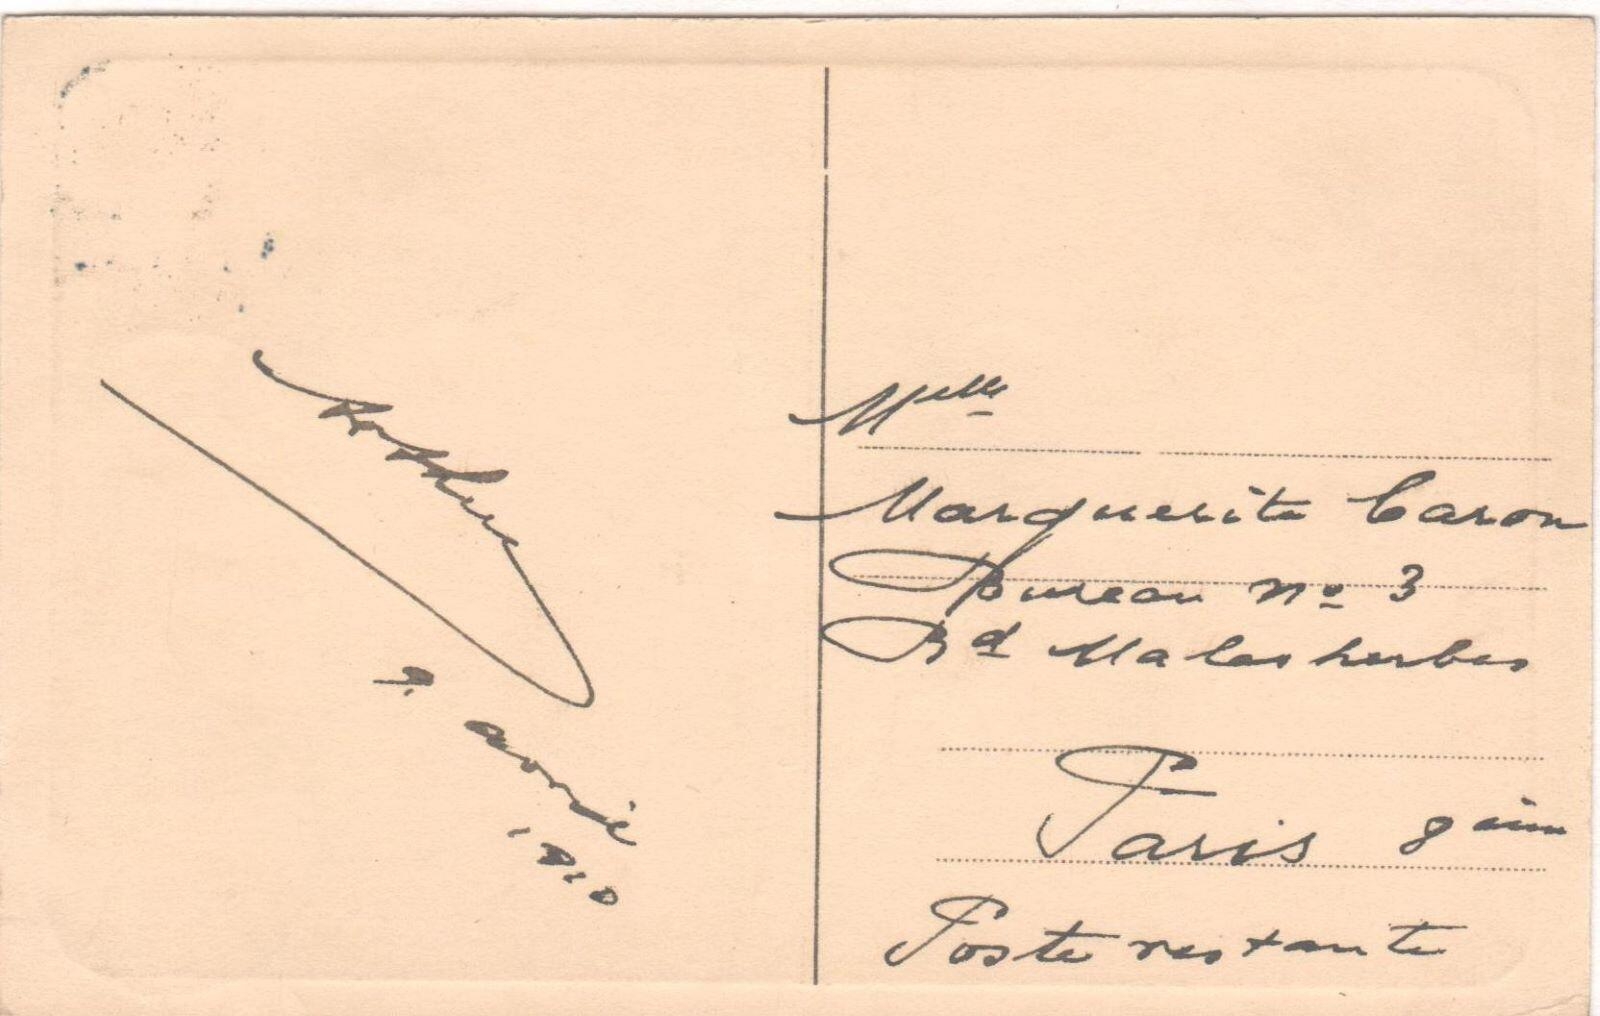 avril
1910
Melle
Marguerite Caron
Bureau no 3
Bd Malesherbes
Paris 8eim
Poste restante